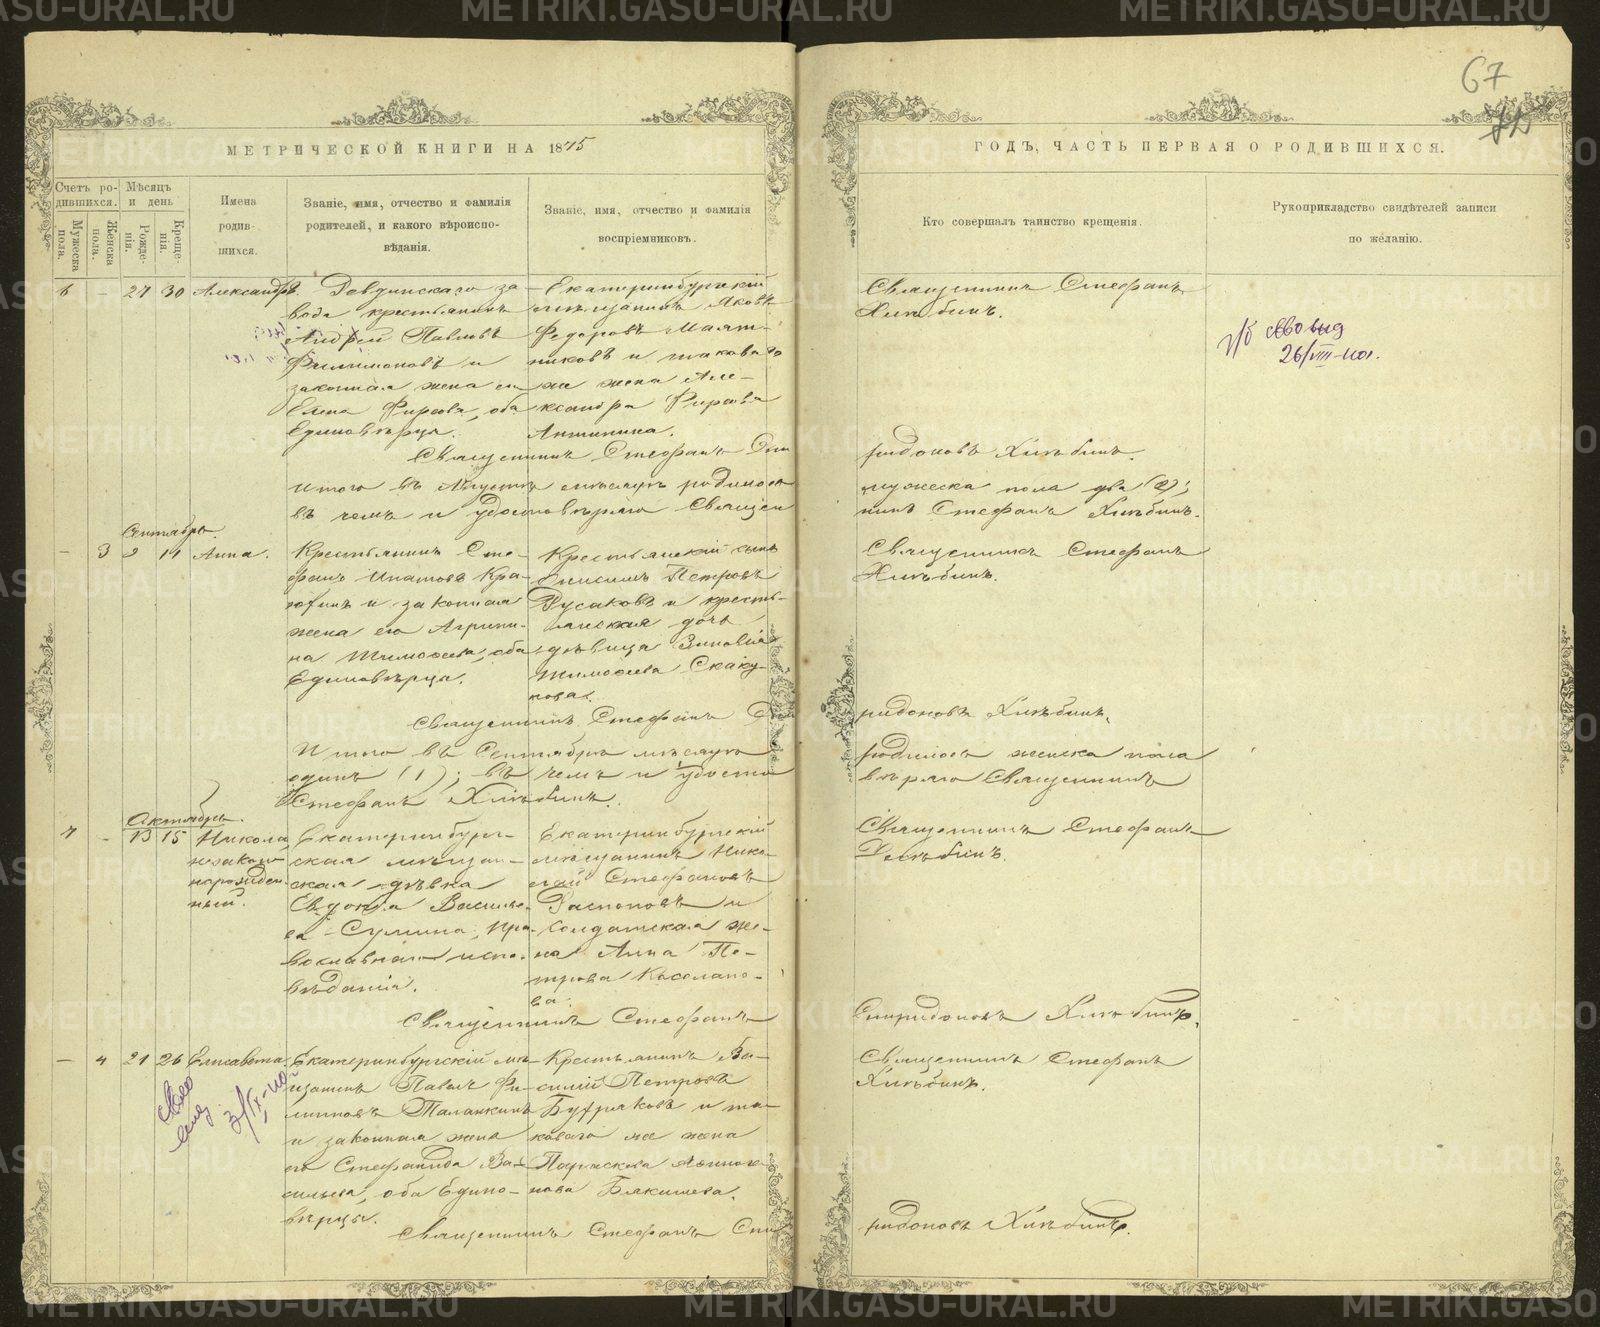 67
МЕТРИЧЕСКОЙ КНИГИ НА 1875
ГОДЪ, ЧАСТЬ ПЕРВАЯ О РОДИВШИХСЯ.
Счетъ ро-
дившихся.
Мужеска
пола.
Женска
пола.
Мѣсяцъ
и день
Рожде-
нія.
Креще-
нія.
Имена
родив-
шихся.
Званіе, имя, отчество и фамилія
родителей, и какого вѣроиспо-
вѣданія.
Званіе, имя, отчество и фамилія
воспріемниковъ.
Кто совершалъ таинство крещенія.
Рукоприкладство свидѣтелей записи
по желанію.
6 - 27 30 Александръ
завода крестьянинъ
Андрей Павловъ
Филимоновъ и
законная жена его
Елена Фирсова, оба
Единовѣрцы.
Екатеринбургскій
мѣщанинъ Яковъ
Федоровъ
и таковаго
же жена Але-
ксандра Фирсова
Антипина.
Священникъ Стефанъ
Хлѣбинъ.
26/VIII
Священникъ Стефанъ Спи
ридоновъ Хлѣбинъ.
Итого въ Августѣ мѣсяцѣ родилось
мужеска пола два (2);
въ чемъ и удостовѣряю Священ
никъ Стефанъ Хлѣбинъ.
Сентябрь.
- 3 2 11 Анна.
Крестьянинъ Сте-
фанъ Ипатовъ
и законная
жена его Агрипи-
на Тимофеева, оба
Единовѣрцы.
Крестьянскій сынъ
Онисимъ Петровъ
Русаковъ и кресть-
янская дочь
дѣвица Зиновія
Тимофеева Скаку-
нова.
Священникъ Стефанъ
Хлѣбинъ.
Священникъ Стефанъ Спи
ридоновъ Хлѣбинъ.
Итого въ Сентябрѣ мѣсяцѣ
родилось женска пола
одинъ (1); въ чемъ и удосто
вѣряю Священникъ
Стефанъ Хлѣбинъ.
Октябрь.
7 - 13 15 Николай
незаконно-
нарожден-
ный.
Екатеринбург-
ская мѣщан-
ская дѣвка
Евдокія Василье-
ва Сумина, пра-
вославнаго испо-
вѣданія.
Екатеринбургскій
мѣщанинъ Нико-
лай Стефановъ
Распоповъ и
Солдатская же-
на Анна Пе-
трова Косолапо-
ва.
Священникъ Стефанъ
Хлѣбинъ.
Священникъ Стефанъ
Спиридоновъ Хлѣбинъ.
- 4 21 26 Елисавета.
Екатеринбургскій мѣ-
щанинъ Павелъ Фи-
липповъ Таланкинъ
и законная жена
его Стефанида Ва-
сильева, оба Едино-
вѣрцы.
Крестьянинъ Ва-
силій Петровъ
и та-
коваго же жена
Параскева
нова Блякишева.
Священникъ Стефанъ
Хлѣбинъ.
Священникъ Стефанъ Спи
ридоновъ Хлѣбинъ.
METRIKI.GASO-URAL.RU